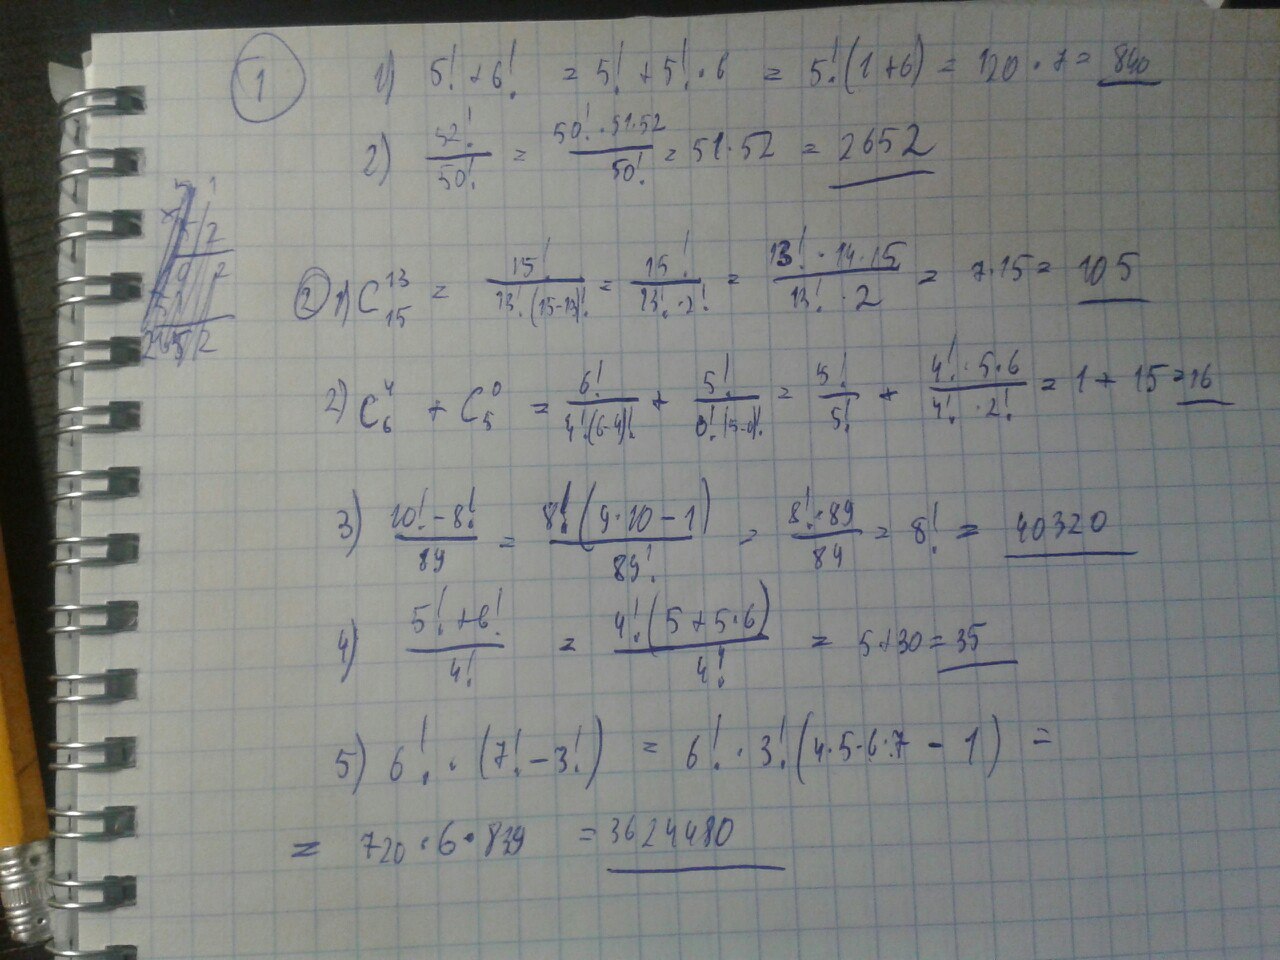 ① 1) 5! + 6! = 5! + 5! · 6 = 5! (1 + 6) = 120 · 7 = 840
2) 52! / 50! = 50! · 51 · 52 / 50! = 51 · 52 = 2652
② 1) C₁₅¹³ = 15! / 13! (15-13)! = 15! / 13! · 2! = 13! · 14 · 15 / 13! · 2 = 7 · 15 = 105
2) C₆⁴ + C₅⁰ = 6! / 4! (6-4)! + 5! / 0! (5-0)! = 5! / 5! + 4! · 5 · 6 / 4! · 2! = 1 + 15 = 16
3) 10! - 8! / 89 = 8! (9 · 10 - 1) / 89! = 8! · 89 / 89 = 8! = 40320
4) 5! + 6! / 4! = 4! (5 + 5 · 6) / 4! = 5 + 30 = 35
5) 6! · (7! - 3!) = 6! · 3! (4 · 5 · 6 · 7 - 1) =
= 720 · 6 · 839 = 3624480